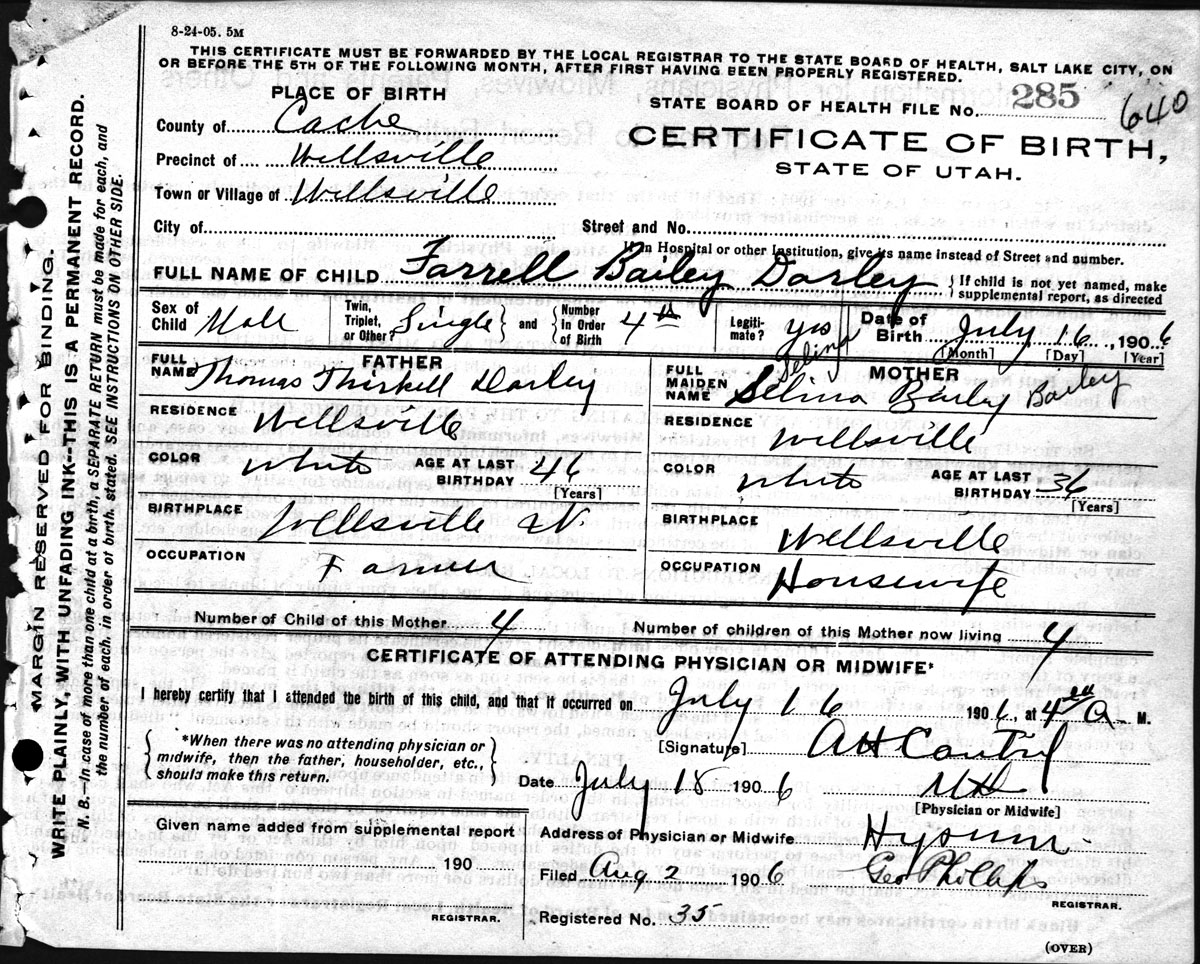 8-24-05. 5M
THIS CERTIFICATE MUST BE FORWARDED BY THE LOCAL REGISTRAR TO THE STATE BOARD OF HEALTH, SALT LAKE CITY, ON
OR BEFORE THE 5TH OF THE FOLLOWING MONTH, AFTER FIRST HAVING BEEN PROPERLY REGISTERED.
PLACE OF BIRTH
STATE BOARD OF HEALTH FILE No. 285 640
County of Cache
CERTIFICATE OF BIRTH,
STATE OF UTAH.
Precinct of Wellsville
Town or Village of Wellsville
City of Street and No.
If in Hospital or other Institution, give its name instead of Street and number.
FULL NAME OF CHILD Farrell Bailey Darley { If child is not yet named, make
supplemental report, as directed
Sex of Child Male Twin, Triplet, or Other? Single } and { Number in Order of Birth 4th Legiti-mate? yes Date of Birth July 16, 1906
[Month] [Day] [Year]
FATHER
FULL NAME Thomas Thirkell Darley
RESIDENCE Wellsville
COLOR White AGE AT LAST BIRTHDAY 46
[Years]
BIRTHPLACE Wellsville
OCCUPATION Farmer
MOTHER
Selina
FULL MAIDEN NAME Selina Bailey
RESIDENCE Wellsville
COLOR White AGE AT LAST BIRTHDAY 36
[Years]
BIRTHPLACE Wellsville
OCCUPATION Housewife
Number of Child of this Mother 4 Number of children of this Mother now living 4
CERTIFICATE OF ATTENDING PHYSICIAN OR MIDWIFE*
I hereby certify that I attended the birth of this child, and that it occurred on July 16 1906, at 4 A M.
{ *When there was no attending physician or
midwife, then the father, householder, etc.,
should make this return. }
[Signature] A H
Date July 18 1906 MD
[Physician or Midwife]
Given name added from supplemental report
190
REGISTRAR.
Address of Physician or Midwife Hyrum
Filed Aug 2 1906 Geo Phillips
REGISTRAR.
Registered No. 35
(OVER)
MARGIN RESERVED FOR BINDING.
WRITE PLAINLY, WITH UNFADING INK—THIS IS A PERMANENT RECORD.
N. B.—In case of more than one child at a birth, a SEPARATE RETURN must be made for each, and
the number of each, in order of birth, stated. SEE INSTRUCTIONS ON OTHER SIDE.